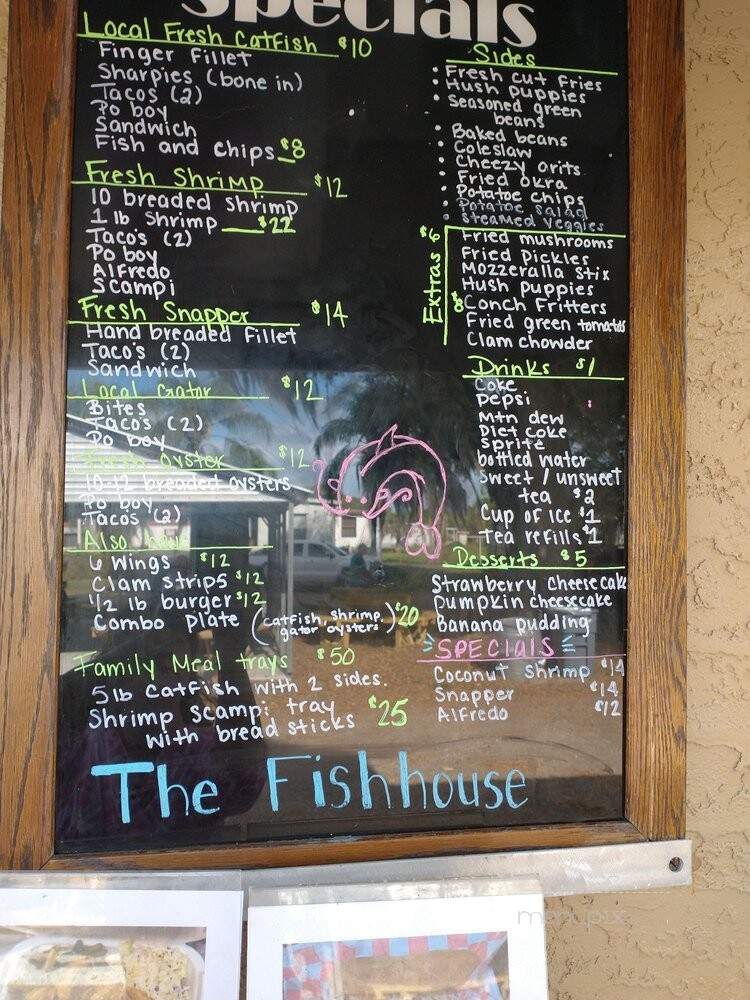 Specials
Local Fresh Catfish $10
Finger Fillet
Sharpies (bone in)
Tacos (2)
Po boy
Sandwich
Fish and chips $8
Fresh Shrimp $12
10 breaded shrimp
1 lb shrimp $22
Taco's (2)
Po boy
Alfredo
Scampi
Fresh Snapper $14
Hand breaded fillet
Taco's (2)
Sandwich
Local Gator $12
Bites
Tacos (2)
Po boy
Fresh oyster $12
10-12 breaded oysters
Po boy
Tacos (2)
Also have
6 wings $12
Clam strips $12
1/2 lb burger $12
Combo Plate (catfish, shrimp, gator oysters) $20
Family Meal trays $50
5lb catfish with 2 sides.
Shrimp scampi tray
with bread sticks $25
Sides
• Fresh cut fries
• Hush puppies
• Seasoned green
beans
• Baked beans
• Coleslaw
• Cheezy grits
• Fried okra
• Potatoe chips
• Potatoe salad
• Steamed veggies
Extras $6
Fried mushrooms
Fried Pickles
Mozzeralla Stix
Hush puppies
$8 Conch Fritters
Fried green tomatoes
Clam chowder
Drinks $1
Coke
Pepsi
Mtn dew
Diet coke
Sprite
bottled water
Sweet / unsweet
tea $2
Cup of ice $1
tea refills $1
Desserts $5
Strawberry cheesecake
pumpkin cheesecake
Banana pudding
SPECIALS
Coconut shrimp $14
Snapper $14
Alfredo $12
The Fishhouse
menupix